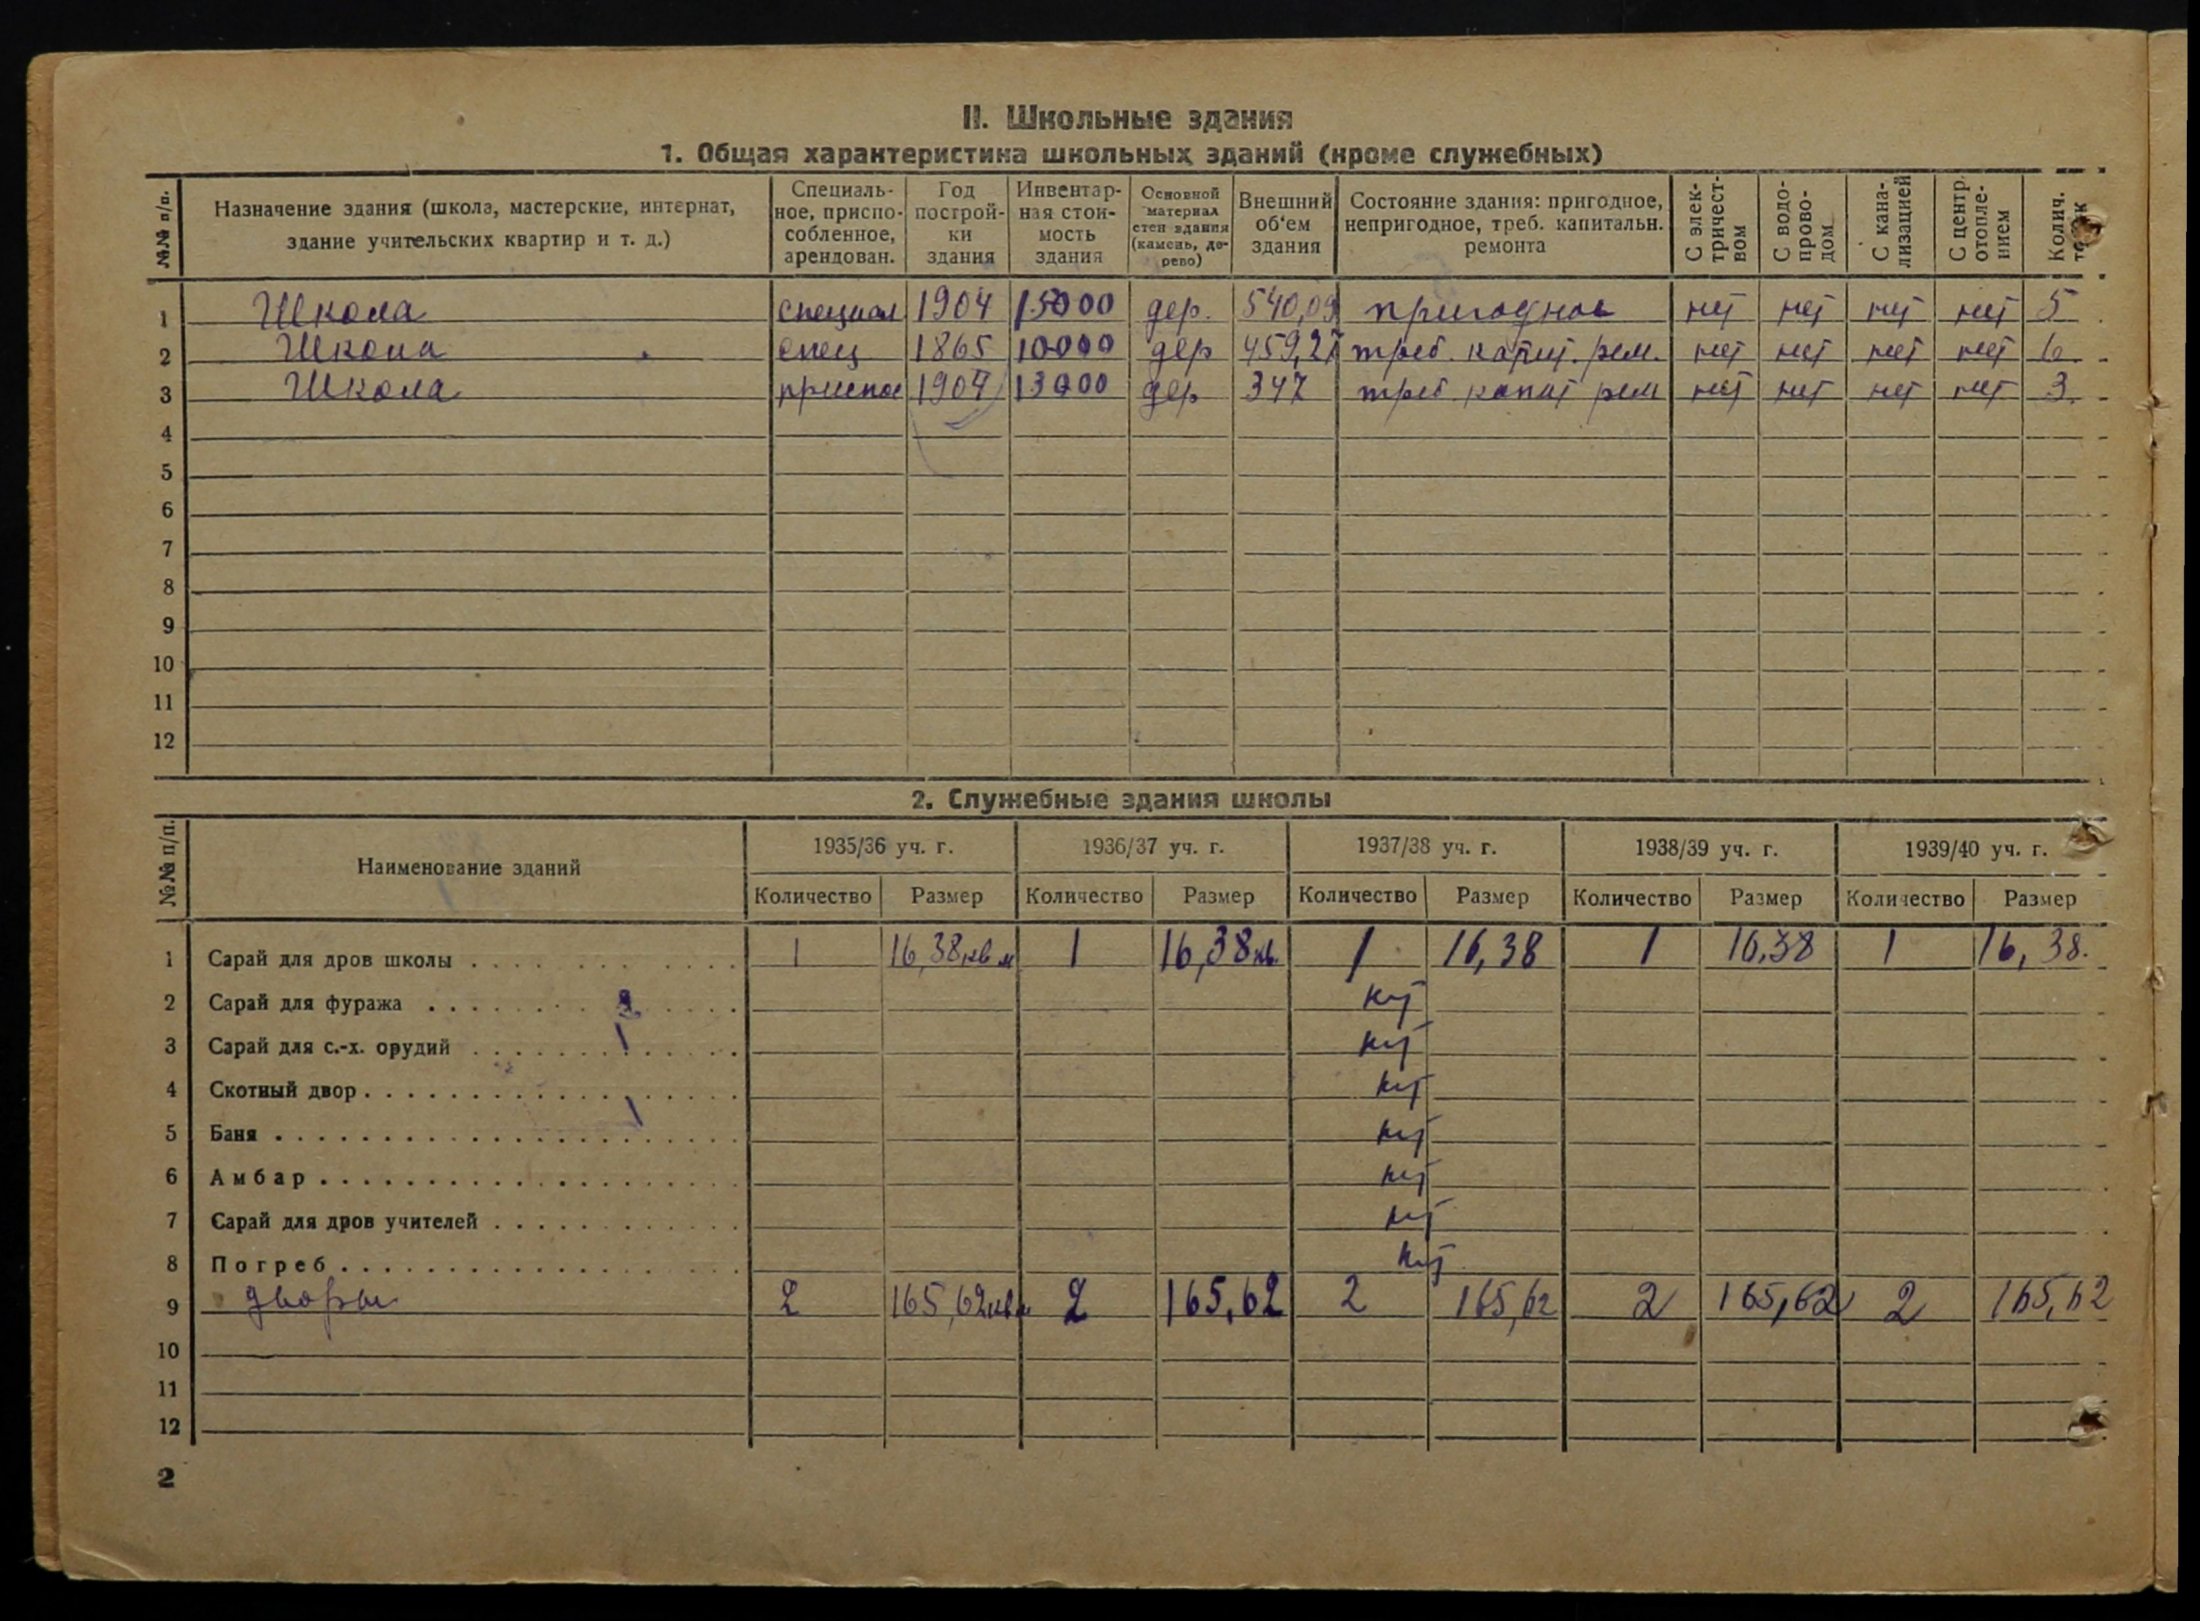 II. Школьные здания
1. Общая характеристика школьных зданий (кроме служебных)
№№ п/п. Назначение здания (школа, мастерские, интернат, здание учительских квартир и т. д.) Специальное, приспособленное, арендован. Год постройки здания Инвентарная стоимость здания Основной материал стен здания (камень, дерево) Внешний об'ем здания Состояние здания: пригодное, непригодное, треб. капитальн. ремонта С электричеством С водопроводом С канализацией С центр. отоплением Колич.
1 Школа специал 1904 15000 дер. 540,09 пригодное нет нет нет нет 5
2 Школа спец 1865 10000 дер 459,27 треб. капит. рем. нет нет нет нет 6
3 Школа приспос 1904 13000 дер 347 треб капит рем нет нет нет нет 3
4
5
6
7
8
9
10
11
12
2. Служебные здания школы
№№ п/п. Наименование зданий 1935/36 уч. г. 1936/37 уч. г. 1937/38 уч. г. 1938/39 уч. г. 1939/40 уч. г.
Количество Размер Количество Размер Количество Размер Количество Размер Количество Размер
1 Сарай для дров школы 1 16,38 кв м 1 16,38 кв. 1 16,38 1 16,38 1 16,38.
2 Сарай для фуража нет
3 Сарай для с.-х. орудий нет
4 Скотный двор нет
5 Баня нет
6 Амбар нет
7 Сарай для дров учителей нет
8 Погреб нет
9 дворы 2 165,62 кв м 2 165,62 2 165,62 2 165,62 2 165,62
10
11
12
2